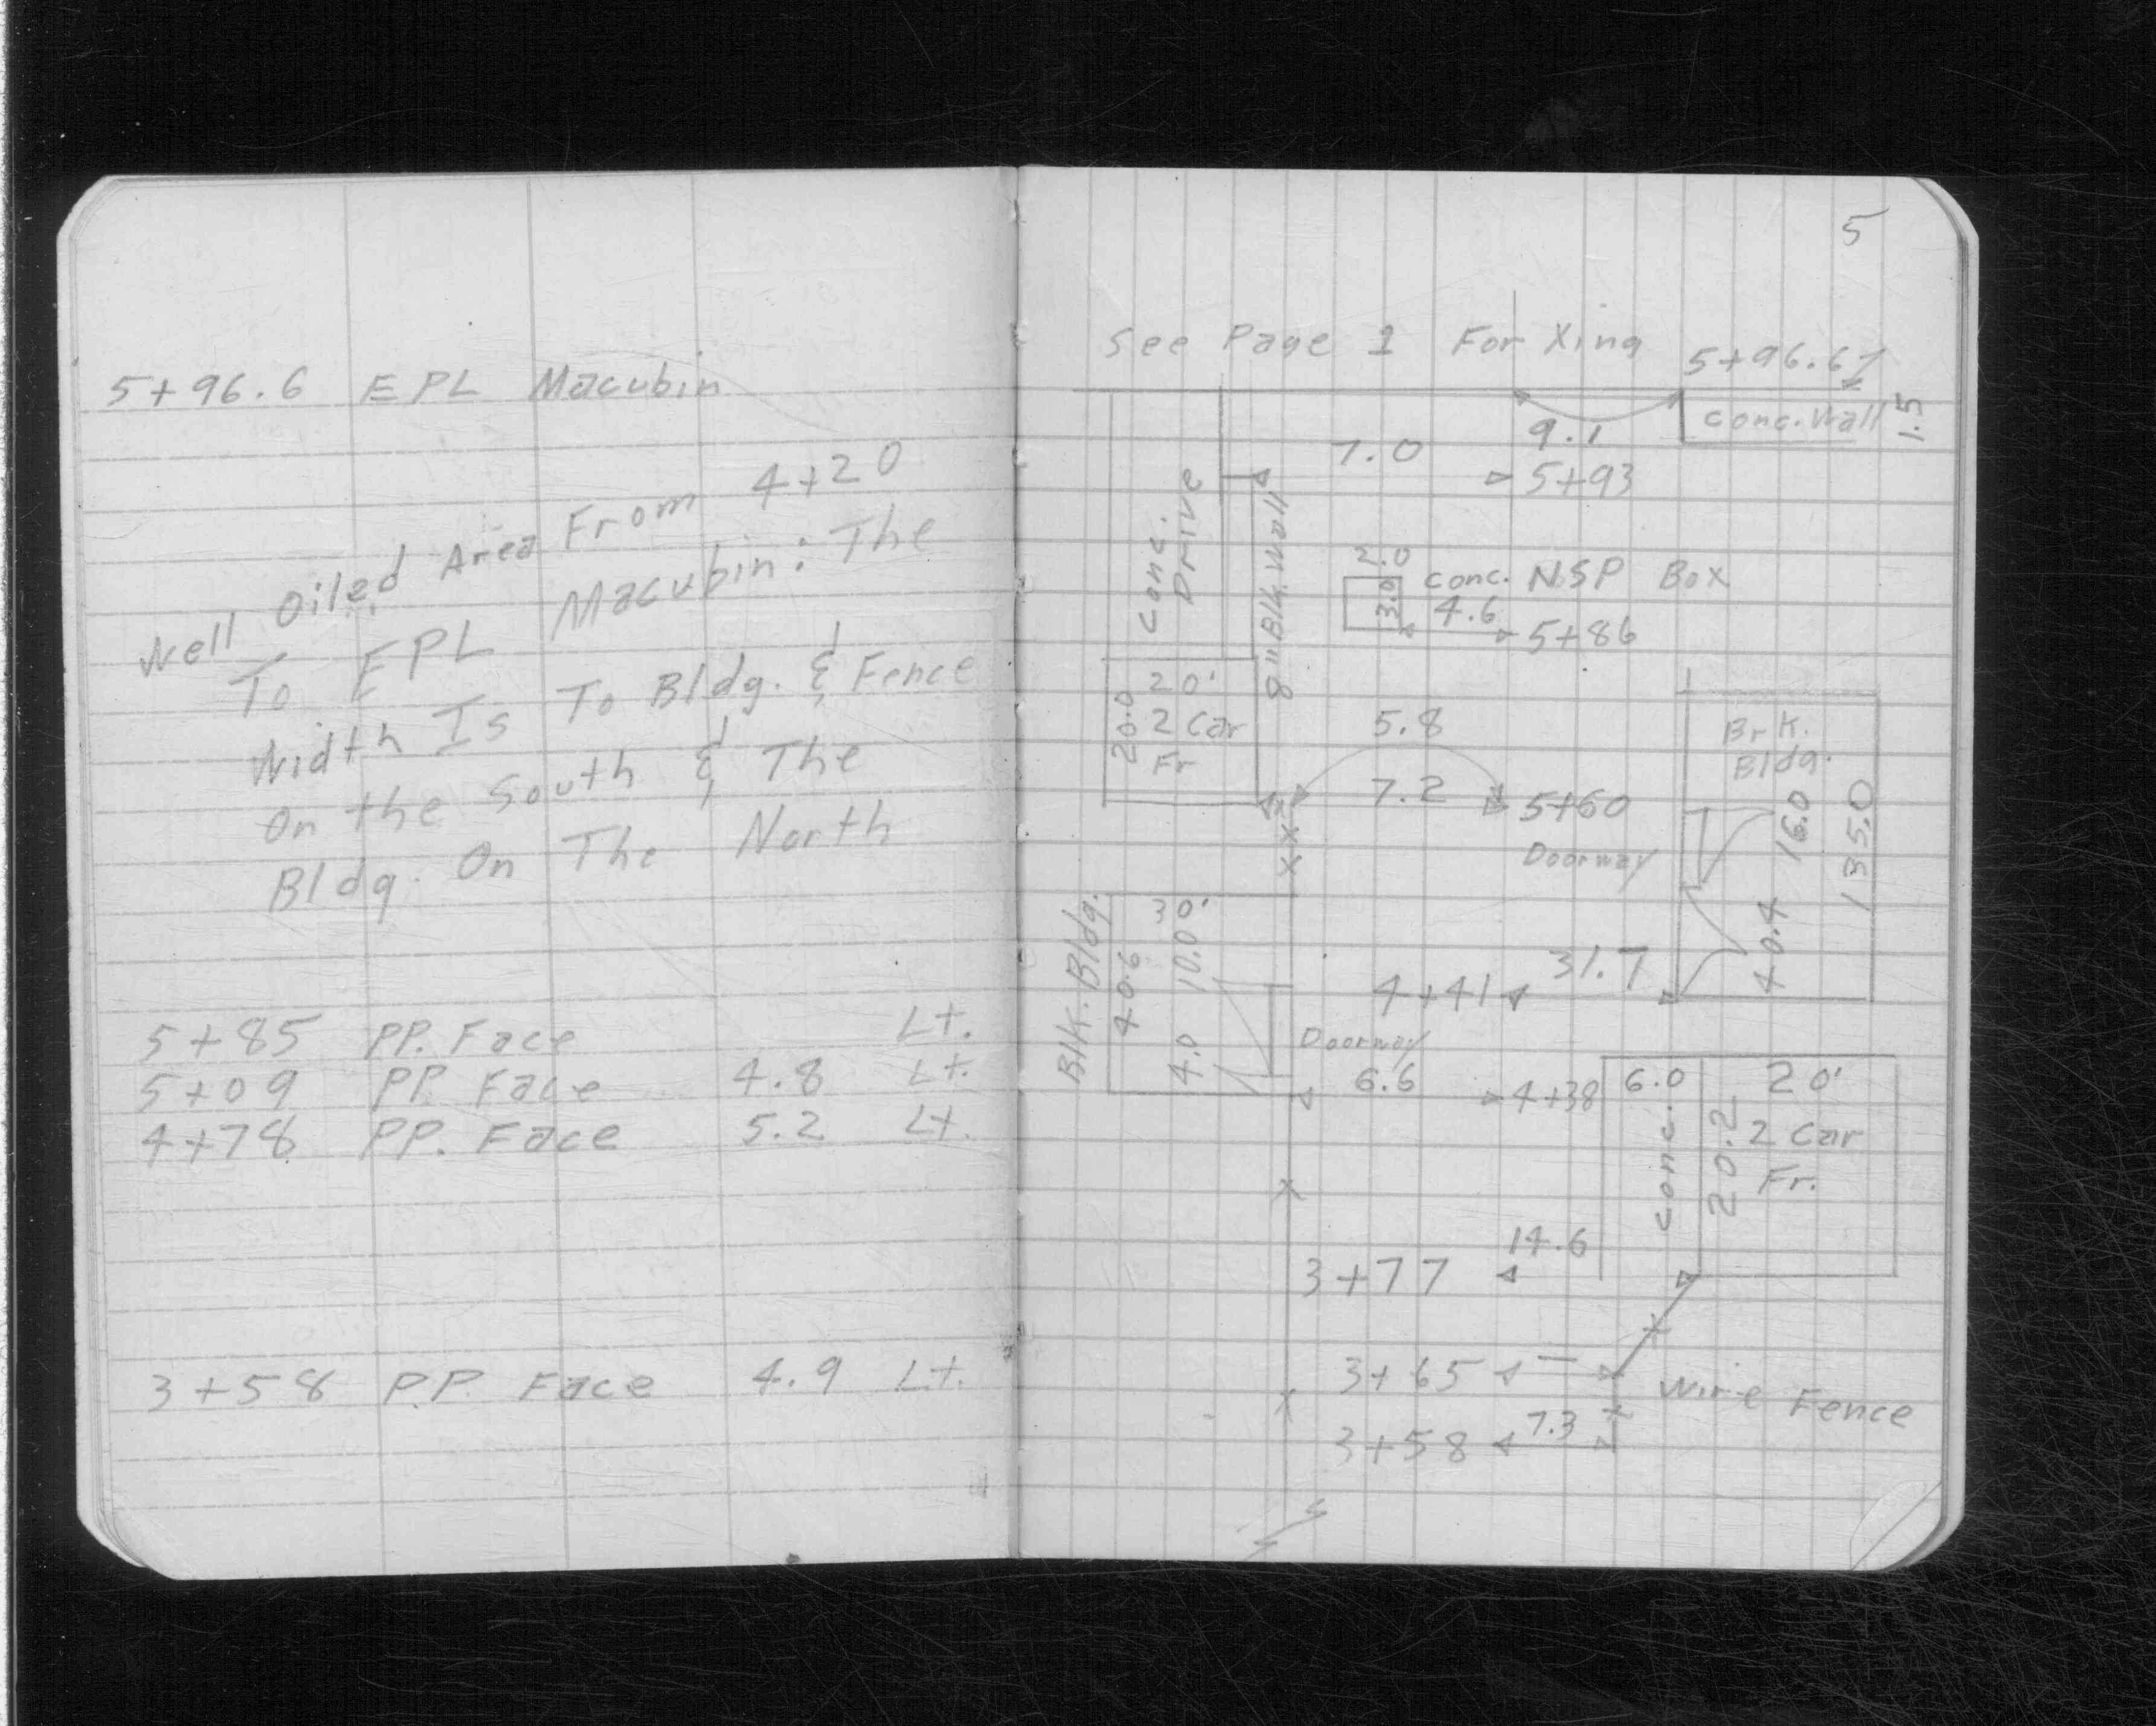 5+96.6 EPL Macubin
Well Oiled Area From 4+20
To EPL Macubin: The
Width Is To Bldg. & Fence
On the South & The
Bldg. On The North
5+85 PP. Face Lt.
5+09 PP. Face 4.8 Lt.
4+78 PP. Face 5.2 Lt.
3+58 P.P. Face 4.9 Lt.
5
See Page 1 For Xing
5+96.6
Conc. Wall
1.5
9.1
7.0
5+93
Conc.
Drive
8" Blk. Wall
2.0
3.0
Conc. NSP Box
4.6
5+86
20'
20.0
2 Car
Fr
5.8
7.2
5+60
Doorway
Brk.
Bldg.
16.0
135.0
40.4
Blk. Bldg.
30'
40.6
10.0
4.0
31.7
4+41
Doorway
6.6
4+38
6.0
Conc.
20'
20.2
2 Car
Fr.
14.6
3+77
3+65
Wire Fence
7.3
3+58